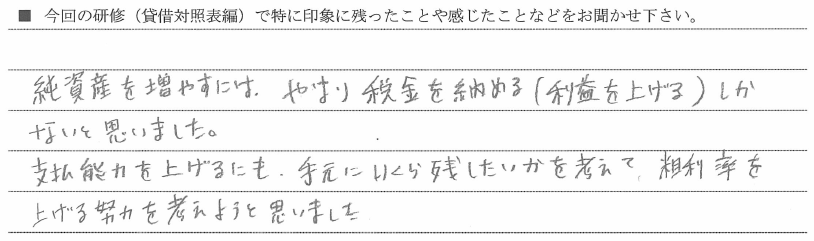 ■ 今回の研修（貸借対照表編）で特に印象に残ったことや感じたことなどをお聞かせ下さい。
純資産を増やすには、やはり税金を納める（利益を上げる）しか
ないと思いました。
支払能力を上げるにも、手元にいくら残したいかを考えて、粗利率を
上げる努力を考えようと思いました